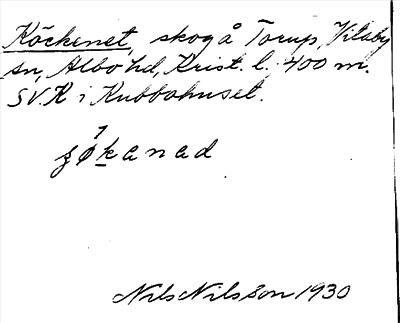 Köckenet, skog å Torup, Vitaby
sn, Albo hd, Krist. l. 400 m.
SV. K i Kubbahuset.
kanad
Nils Nilsson 1930